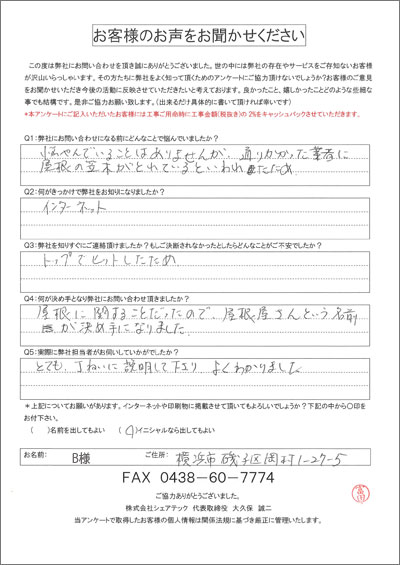 お客様のお声をお聞かせください
この度は弊社にお問い合わせを頂き誠にありがとうございました。世の中には弊社の存在やサービスをご存知ないお客様
が沢山いらっしゃいます。その方たちに弊社をよく知って頂くためのアンケートにご協力頂けないでしょうか?お客様のご意見
をお聞かせいただき今後の活動に反映させていただきたいと考えております。良かったこと、嬉しかったことどのような些細な
事でも結構です。是非ご協力お願い致します。(出来るだけ具体的に書いて頂ければ幸いです)
*本アンケートにご記入いただいたお客様には工事ご用命時に工事金額(税抜き)の 2%をキャッシュバックさせていただきます。
Q1:弊社にお問い合わせになる前にどんなことで悩んでいましたか?
悩やんでいることはありませんが、通りかかった業者に
屋根の笠木がとれているといわれたため
Q2:何がきっかけで弊社をお知りになりましたか?
インターネット
Q3:弊社を知りすぐにご連絡頂けましたか?もしご決断されなかったとしたらどんなことがご不安でしたか?
トップでヒットしたため
Q4:何が決め手となり弊社にお問い合わせ頂きましたか?
屋根に関することだったので、屋根屋さんという名前
が決め手になりました。
Q5:実際に弊社担当者がお伺いしていかがでしたか?
とても、丁ねいに説明して下さり よくわかりました。
*上記についてお願いがあります。インターネットや印刷物に掲載させて頂いてもよろしいでしょうか?下記の中から〇印を
お付下さい。
( )名前を出してもよい (〇)イニシャルなら出してもよい
お名前: B様 ご住所: 横浜市磯子区岡村1-27-5
FAX 0438-60-7774
ご協力ありがとうございました。
株式会社シェアテック 代表取締役 大久保 誠二
当アンケートで取得したお客様の個人情報は関係法規に基づき厳正に管理いたします。